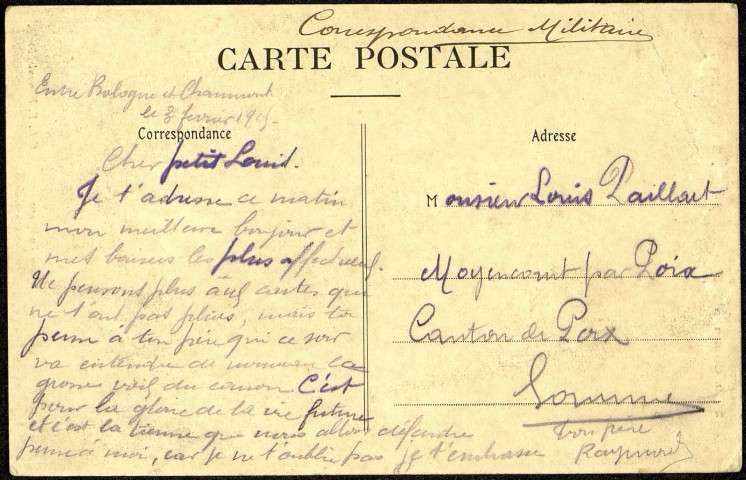 Correspondance Militaire
CARTE POSTALE
Entre Bologne et Chaumont
le 3 fevrier 191
Correspondance
Cher petit Louis.
Je t'adresse ce matin
mon meilleur bonjour et
mes baisers les plus affectueux.
Ne pensons plus aux cartes que
ne t'ont pas plues, mais toi
pense à ton père qui ce soir
va entendre de nouveau la
grosse voix du canon C'est
pour la gloire de la vie future
et c'est la tienne que nous allons défendre
pense à moi, car je ne t'oublie pas je t'embrasse
Ton père
Raymond
Adresse
Monsieur Louis Paillart
Moyencourt par Poix
Canton de Poix
Somme